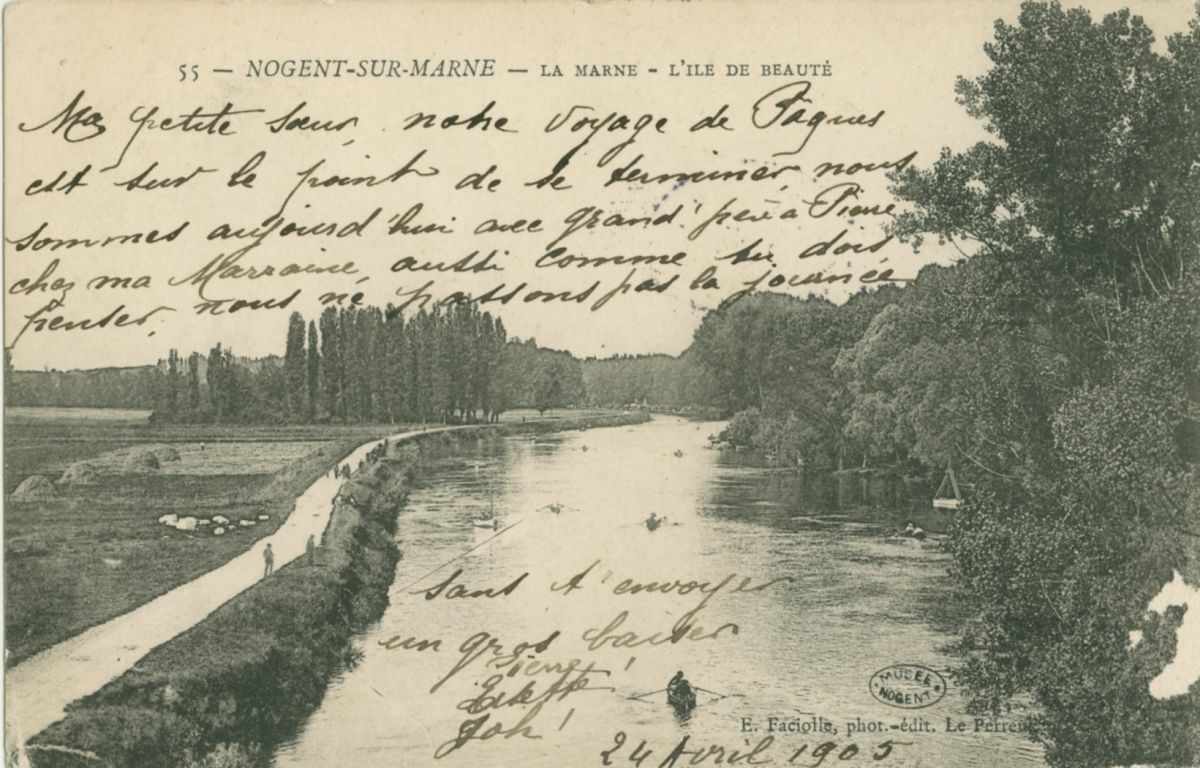 55 — NOGENT-SUR-MARNE — LA MARNE - L'ILE DE BEAUTÉ
Ma petite sœur, notre voyage de Pâques
est sur le point de se terminer, nous
sommes aujourd'hui avec grand'père à Pierre
chez ma Marraine, aussi comme tu dois
penser, nous ne passons pas la journée
sans t'envoyer
un gros baiser
Pierre
24 Avril 1905
MUSEE NOGENT
E. Faciolle, phot.-édit. Le Perreux